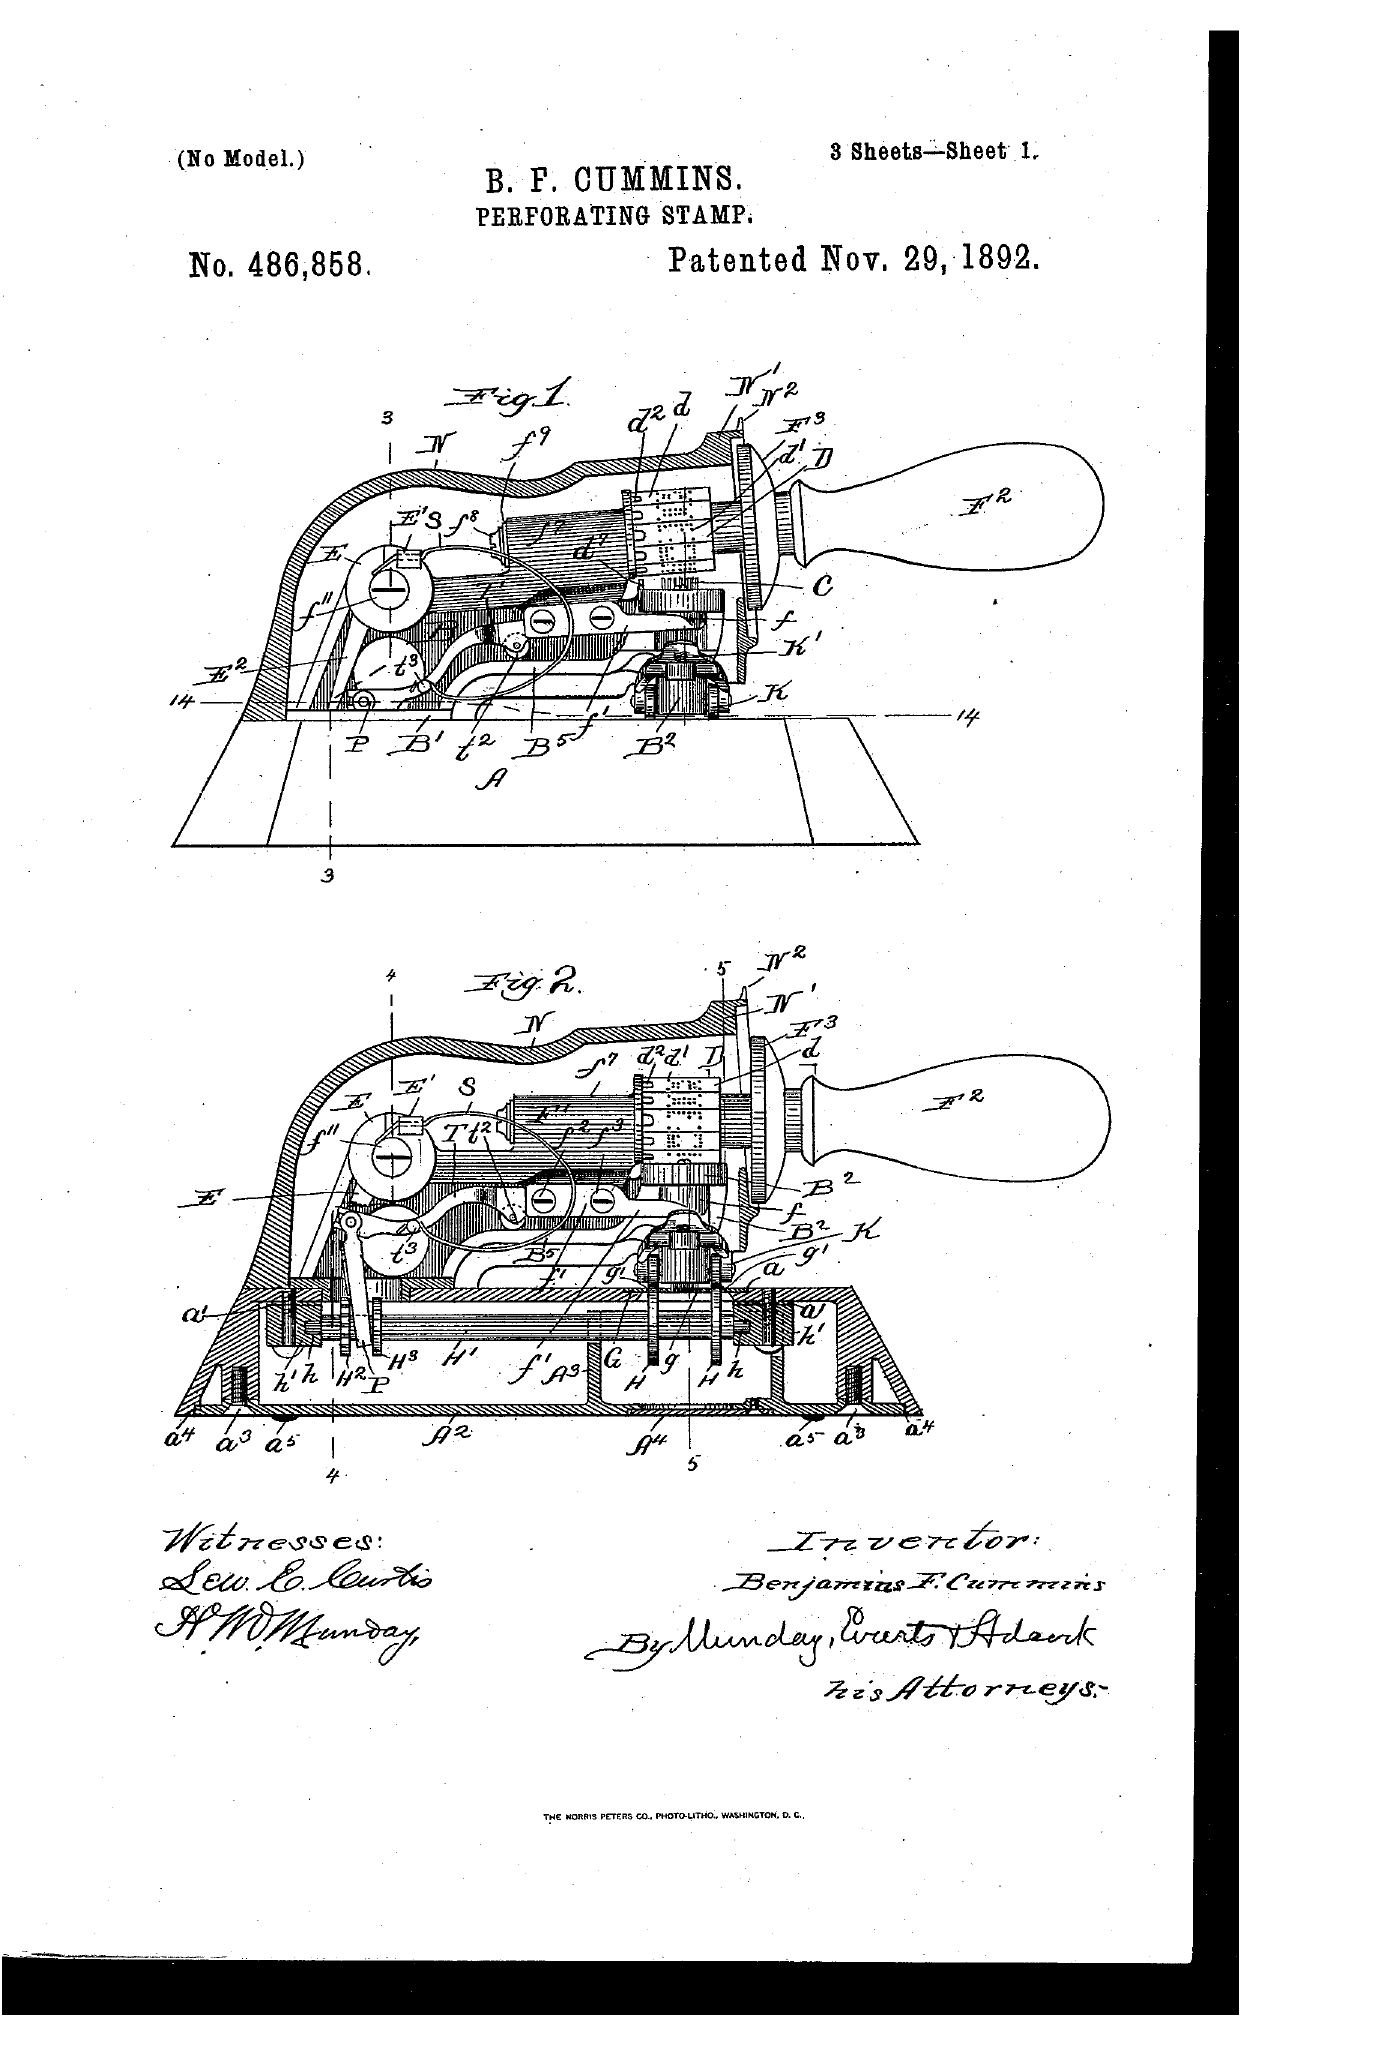 (No Model.)
3 Sheets—Sheet 1.
B. F. CUMMINS.
PERFORATING STAMP.
No. 486,858.
Patented Nov. 29, 1892.
Fig. 1.
3
N
f9
d2
d
N'
N2
F3
d'
D
F2
E'
S
f8
f7
d7
E
f''
T'
B
C
f
K'
E2
t3
14
14
P
B'
t2
B5
f'
B2
K
A
3
Fig. 2.
4
5
N2
N
N'
F3
f7
d2
d'
D
d
F2
E'
S
E
f''
T
t2
F''
f2
f3
E
B2
f
B2
K
t3
B5
f'
g'
g'
a
a'
a'
h'
h'
h
H2
P
H3
H'
f'
A3
G
H
g
H
h
a4
a3
a5
A2
A4
a5
a3
a4
4
5
Witnesses:
Lew. E. Curtis
H. W. Munday,
Inventor:
Benjamin F. Cummins
By Munday, Evarts & Adcock
his Attorneys.
THE NORRIS PETERS CO., PHOTO-LITHO., WASHINGTON, D. C.